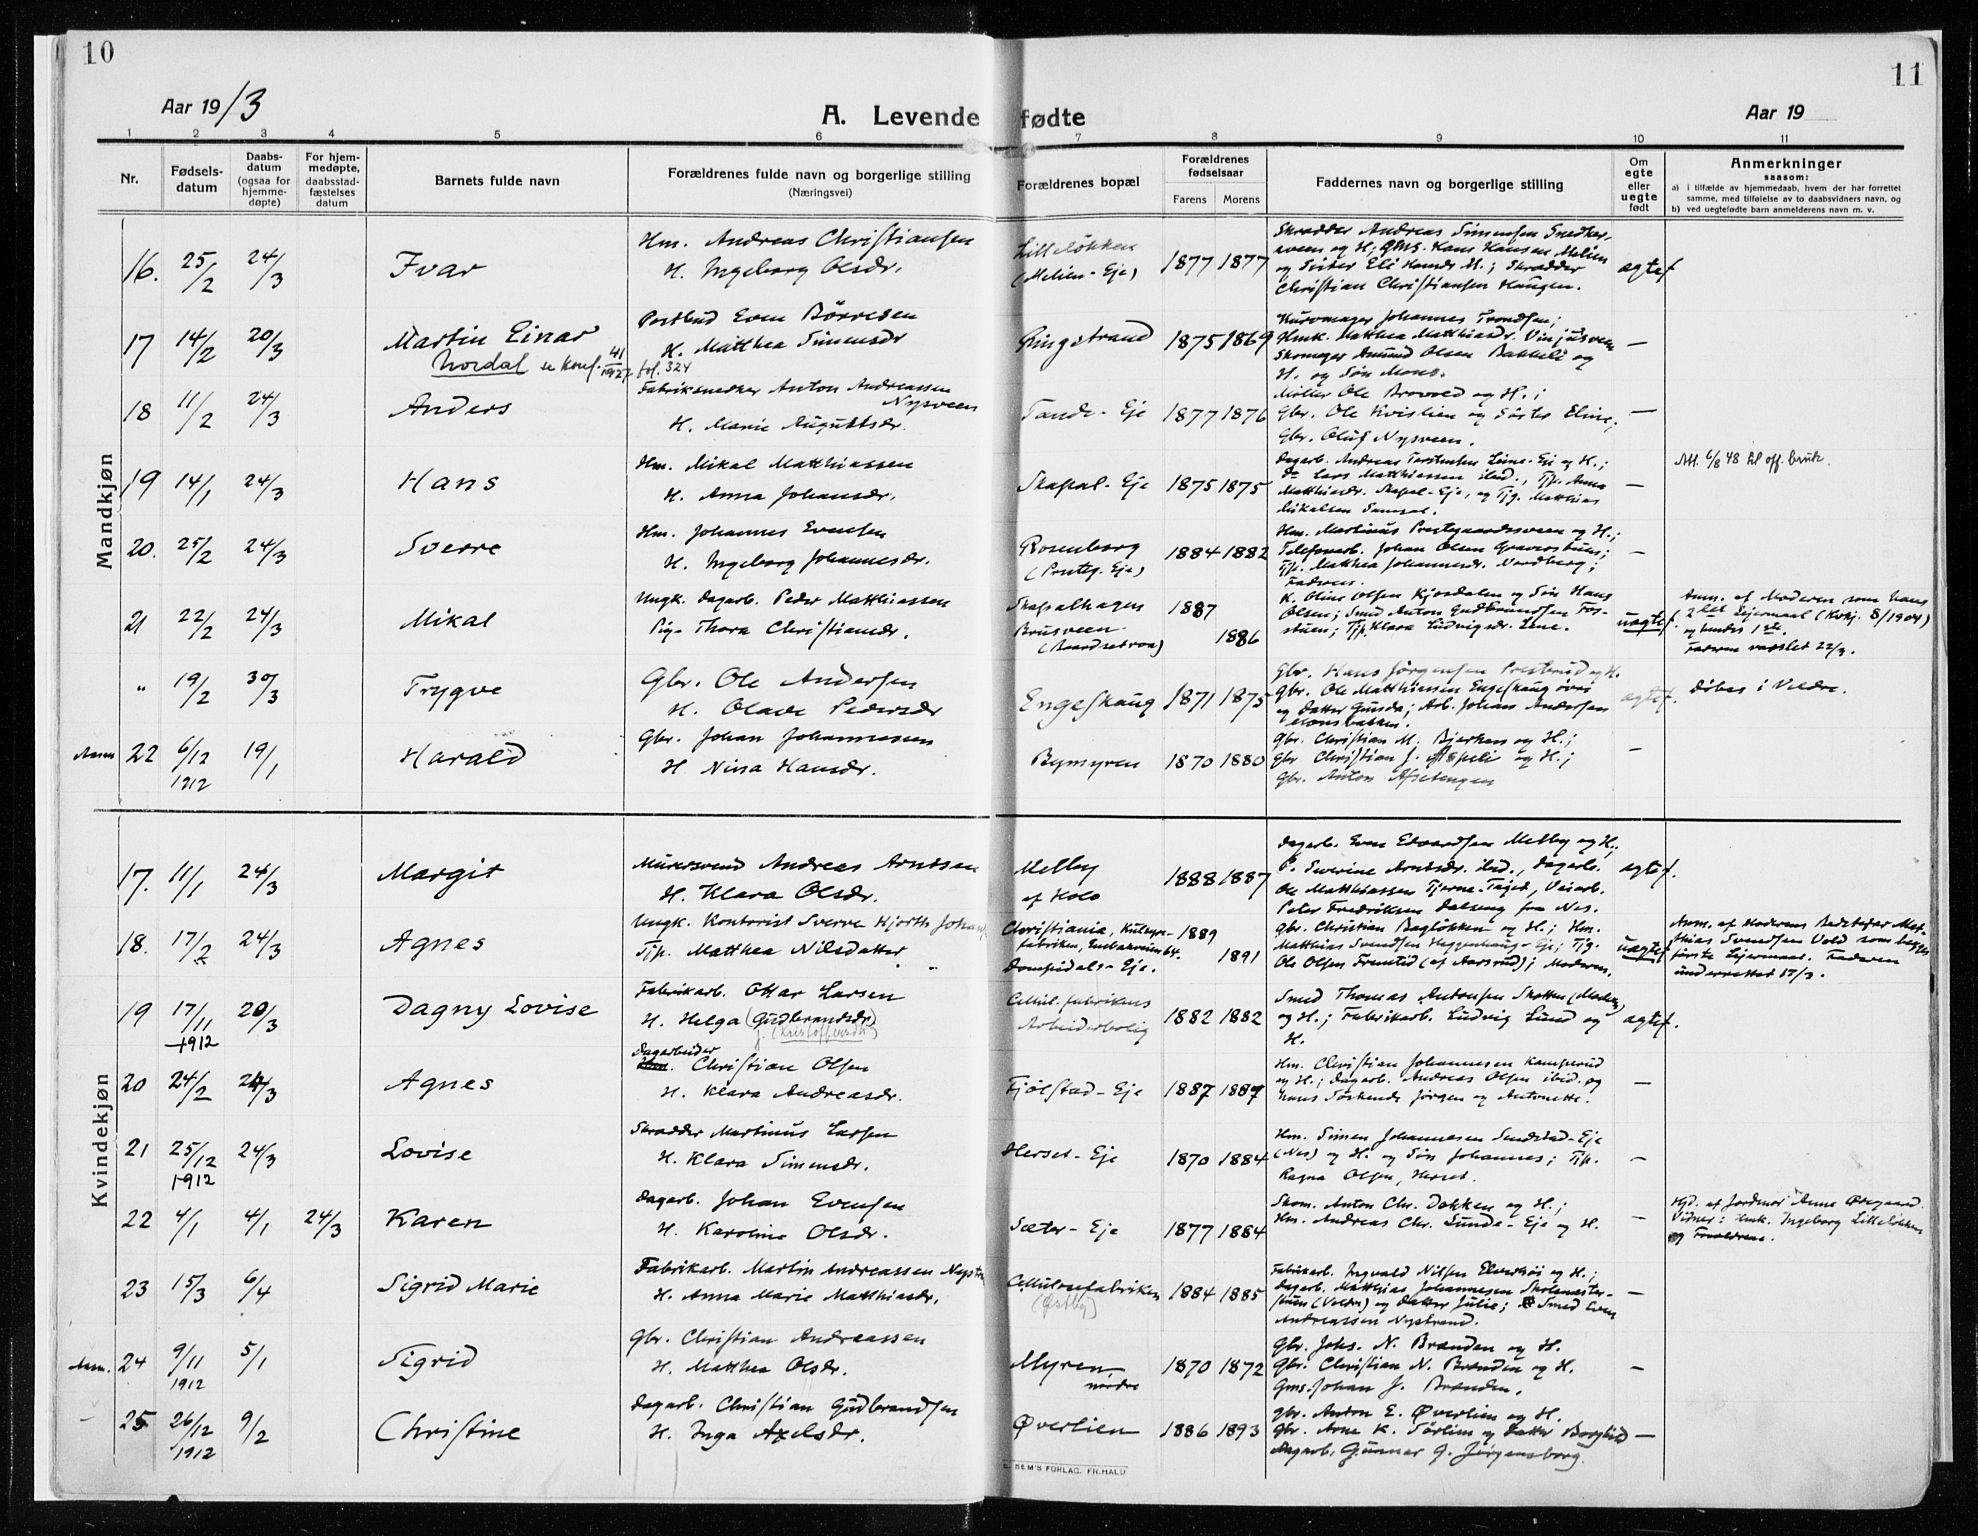 10
11
Aar 1913
A. Levende fødte
Aar 19
1 2 3 4 5 6 7 8 9 10 11
Nr.
Fødsels-
datum
Daabs-
datum
(ogsaa for
hjemme-
døpte)
For hjem-
medøpte,
daabsstad-
fæstelses
datum
Barnets fulde navn
Forældrenes fulde navn og borgerlige stilling
(Næringsvei)
Forældrenes bopæl
Forældrenes
fødselsaar
Farens Morens
Faddernes navn og borgerlige stilling
Om
egte
eller
uegte
født
Anmerkninger
saasom:
a) i tilfælde av hjemmedaab, hvem der har forrettet
samme, med tilføielse av to daabsvidners navn, og
b) ved uegtefødte barn anmelderens navn m. v.
Mandkjøn
16. 25/2 24/3 Ivar
Hm. Andreas Christiansen
H. Ingeborg Olsdr.
Lilleløkken
(Melien-Eje)
1877 1877
Skrædder Andreas Simensen Snedker-
sveen og H; Gms. Hans Hansen Melien
og Søster Eli Hansdr. M.; Skrædder
Christian Christiansen Haugen.
ægtef.
17 14/2 20/3 Martin Einar
Nordal se konf. 41/1927 fol. 324
Postbud Even Børresen
H. Matthea Simensdr
Ringstrand
1875 1869
Kurvmager Johannes Trondsen;
Hmk. Matthea Matthiasdr. Vinjusveen
Skomager Amund Olsen Bakkeli og
H. og Søn Mons.
—
18 11/2 24/3 Anders
Fabriksnedker Anton Andreassen
Nysveen
H. Marie Augustsdr.
Tande-Eje
1877 1876
Møller Ole Brovold og H.;
Gbr. Ole Kvislien og Søster Eline;
Gbr. Oluf Nysveen.
—
19 14/1 24/3 Hans
Hm. Mikal Matthiassen
H. Anna Johansdr.
Skapal-Eje
1875 1875
Dagarb. Andreas Torstensen Leine-Eje og H.;
Do Lars Matthiassen ibid., Tjp. Anna
Matthiasdr. Skapal-Eje, og Tjg. Matthias
Mikalsen
—
Att. 6/8 48 til off. bruk.
20. 25/2 24/3 Sverre
Hm. Johannes Evensen
H. Ingeborg Johannesdr.
Rosenborg
(Presteg. Eje)
1884 1882
Hm. Martinus Prestegaardssveen og H.;
Telefonarb. Johan Olsen
Tjp. Matthea Johannesdr. Nordberg;
Faderen.
—
21 22/2 24/3 Mikal
Ungk. Dagarb. Peder Matthiassen
Pig. Thora Christiansdr.
Skapalhagen
Brusveen
(Baardsetroa)
1887
1886
K. Oline Olsen Kjosdalen og Søn Hans
Olsen; Smed Anton Gudbrandsen
stuen; Tjp. Klara Ludvigsdr. Lene.
uægtef.
Anm. af Moderen som hans
2det Lejermaal (Kvkj. 8/1904)
og hendes 1ste.
Faderen varslet 22/3.
" 19/2 30/3 Trygve
Gbr. Ole Andersen
H. Olave Pedersdr
Engeskaug
1871 1875
Gbr. Hans Jørgensen Presterud og H.
Gbr. Ole Matthiassen Engeskaug øvre
og Datter Gunda; Arb. Johan Andersen
ægtef.
Døbes i Veldre.
22 6/12 1912 19/1 Harald
Gbr. Johan Johannessen
H Nina Hansdr.
Bymyren
1870 1880
Gbr. Christian M. Bjerken og H.;
Gbr Christian J. Aspeli og H.;
Gbr. Anton Afsetengen
—
Kvindekjøn
17. 11/1 24/3 Margit
Murersvend Andreas Arntsen
H. Klara Olsdr.
Melby
af Holo
1888 1887
Dagarb. Even Edvardsen Melby og H.;
P. Severine Arntsdr. ibid., Dagarb.
Ole Matthiassen Tjerne-Taget, Veiarb.
Peter Fredriksen Dalseng fra Nes.
ægtef.
18. 17/2 24/3 Agnes
Ungk. Kontorist Sverre Hjorth
Tjp. Matthea Nilsdatter
Christiania,
Eje.
1889
1891
Gbr. Christian Bagløkken og H.; Hm.
Matthias Svendsen Heggenhaug-Eje; Tjg.
Ole Olsen Fremtid (af Aarsrud); Moderen.
uægtef
Anm. af Moderens Bedstefar Mat-
thias Svendsen Vold som begges
første Lejermaal. Faderen
underrettet 17/3.
19 17/11 1912 20/3 Dagny Lovise
Fabrikarb. Ottar Larsen
H. Helga (Gudbrandsdr)
Cellul. fabrikens
Arbeiderbolig
1882 1882
Smed Thomas Antonsen Skatten
og H.; Fabrikarb. Ludvig Lund og
H.
ægtef.
20 24/2 24/3 Agnes
Dagarbeider
Christian Olsen
H. Klara Andreasdr.
Fjølstad-Eje
1887 1887
Hm. Christian Johannesen Kamperud
og H.; Dagarb. Andreas Olsen ibid. og
hans Søskende Jørgen og Antonette.
—
21 25/12 1912 24/3 Lovise
Skrædder Martinus Larsen
H. Klara Simensdr.
Herset-Eje
1870 1884
Hm. Simen Johannesen Sundstad-Eje
(Nes) og H. og Søn Johannes; Tjp.
Ragna Olsen, Herset.
—
22 4/1 4/1 24/3 Karen
Dagarb. Johan Evensen
H. Karoline Olsdr.
Sæter-Eje
1877 1884
Skom. Anton Chr. Dokken og H.;
Hm. Andreas Chr. Lunde-Eje og H.
—
Hjd. af Jordmor Anne Østgaard.
Vidner: Hmk. Ingeborg Lilleløkken
og Forældrene.
23 15/3 6/4 Sigrid Marie
Fabrikarb. Martin Andreassen
H. Anna Marie Matthiasdr.
Cellulosefabriken
(Østby)
1884 1885
Fabrikarb. Ingvald Nilsen Elverhøi og H.;
Dagarb. Matthias Johannesen Skolemester-
stuen (Veldre) og Datter Julie; Smed Even
Andreassen Nystrand.
—
24 9/11 1912 5/1 Sigrid
Gbr. Christian Andreassen
H. Matthea Olsdr.
Myren
nordre
1870 1872
Gbr. Johs. N. Brænden og H.
Gbr. Christian N. Brænden og H.
Gms. Johan J. Brænden.
—
25 26/12 1912 9/2 Christine
Dagarb. Christian Gudbrandsen
H. Inga Axelsdr.
Øverlien
1886 1893
Gbr. Anton E. Øverlien og H.
Gbr. Arne K. Sørlien og Datter Borghild
Dagarb. Gunnar G. Jørgensborg
—
SEM'S FORLAG, FR.HALD